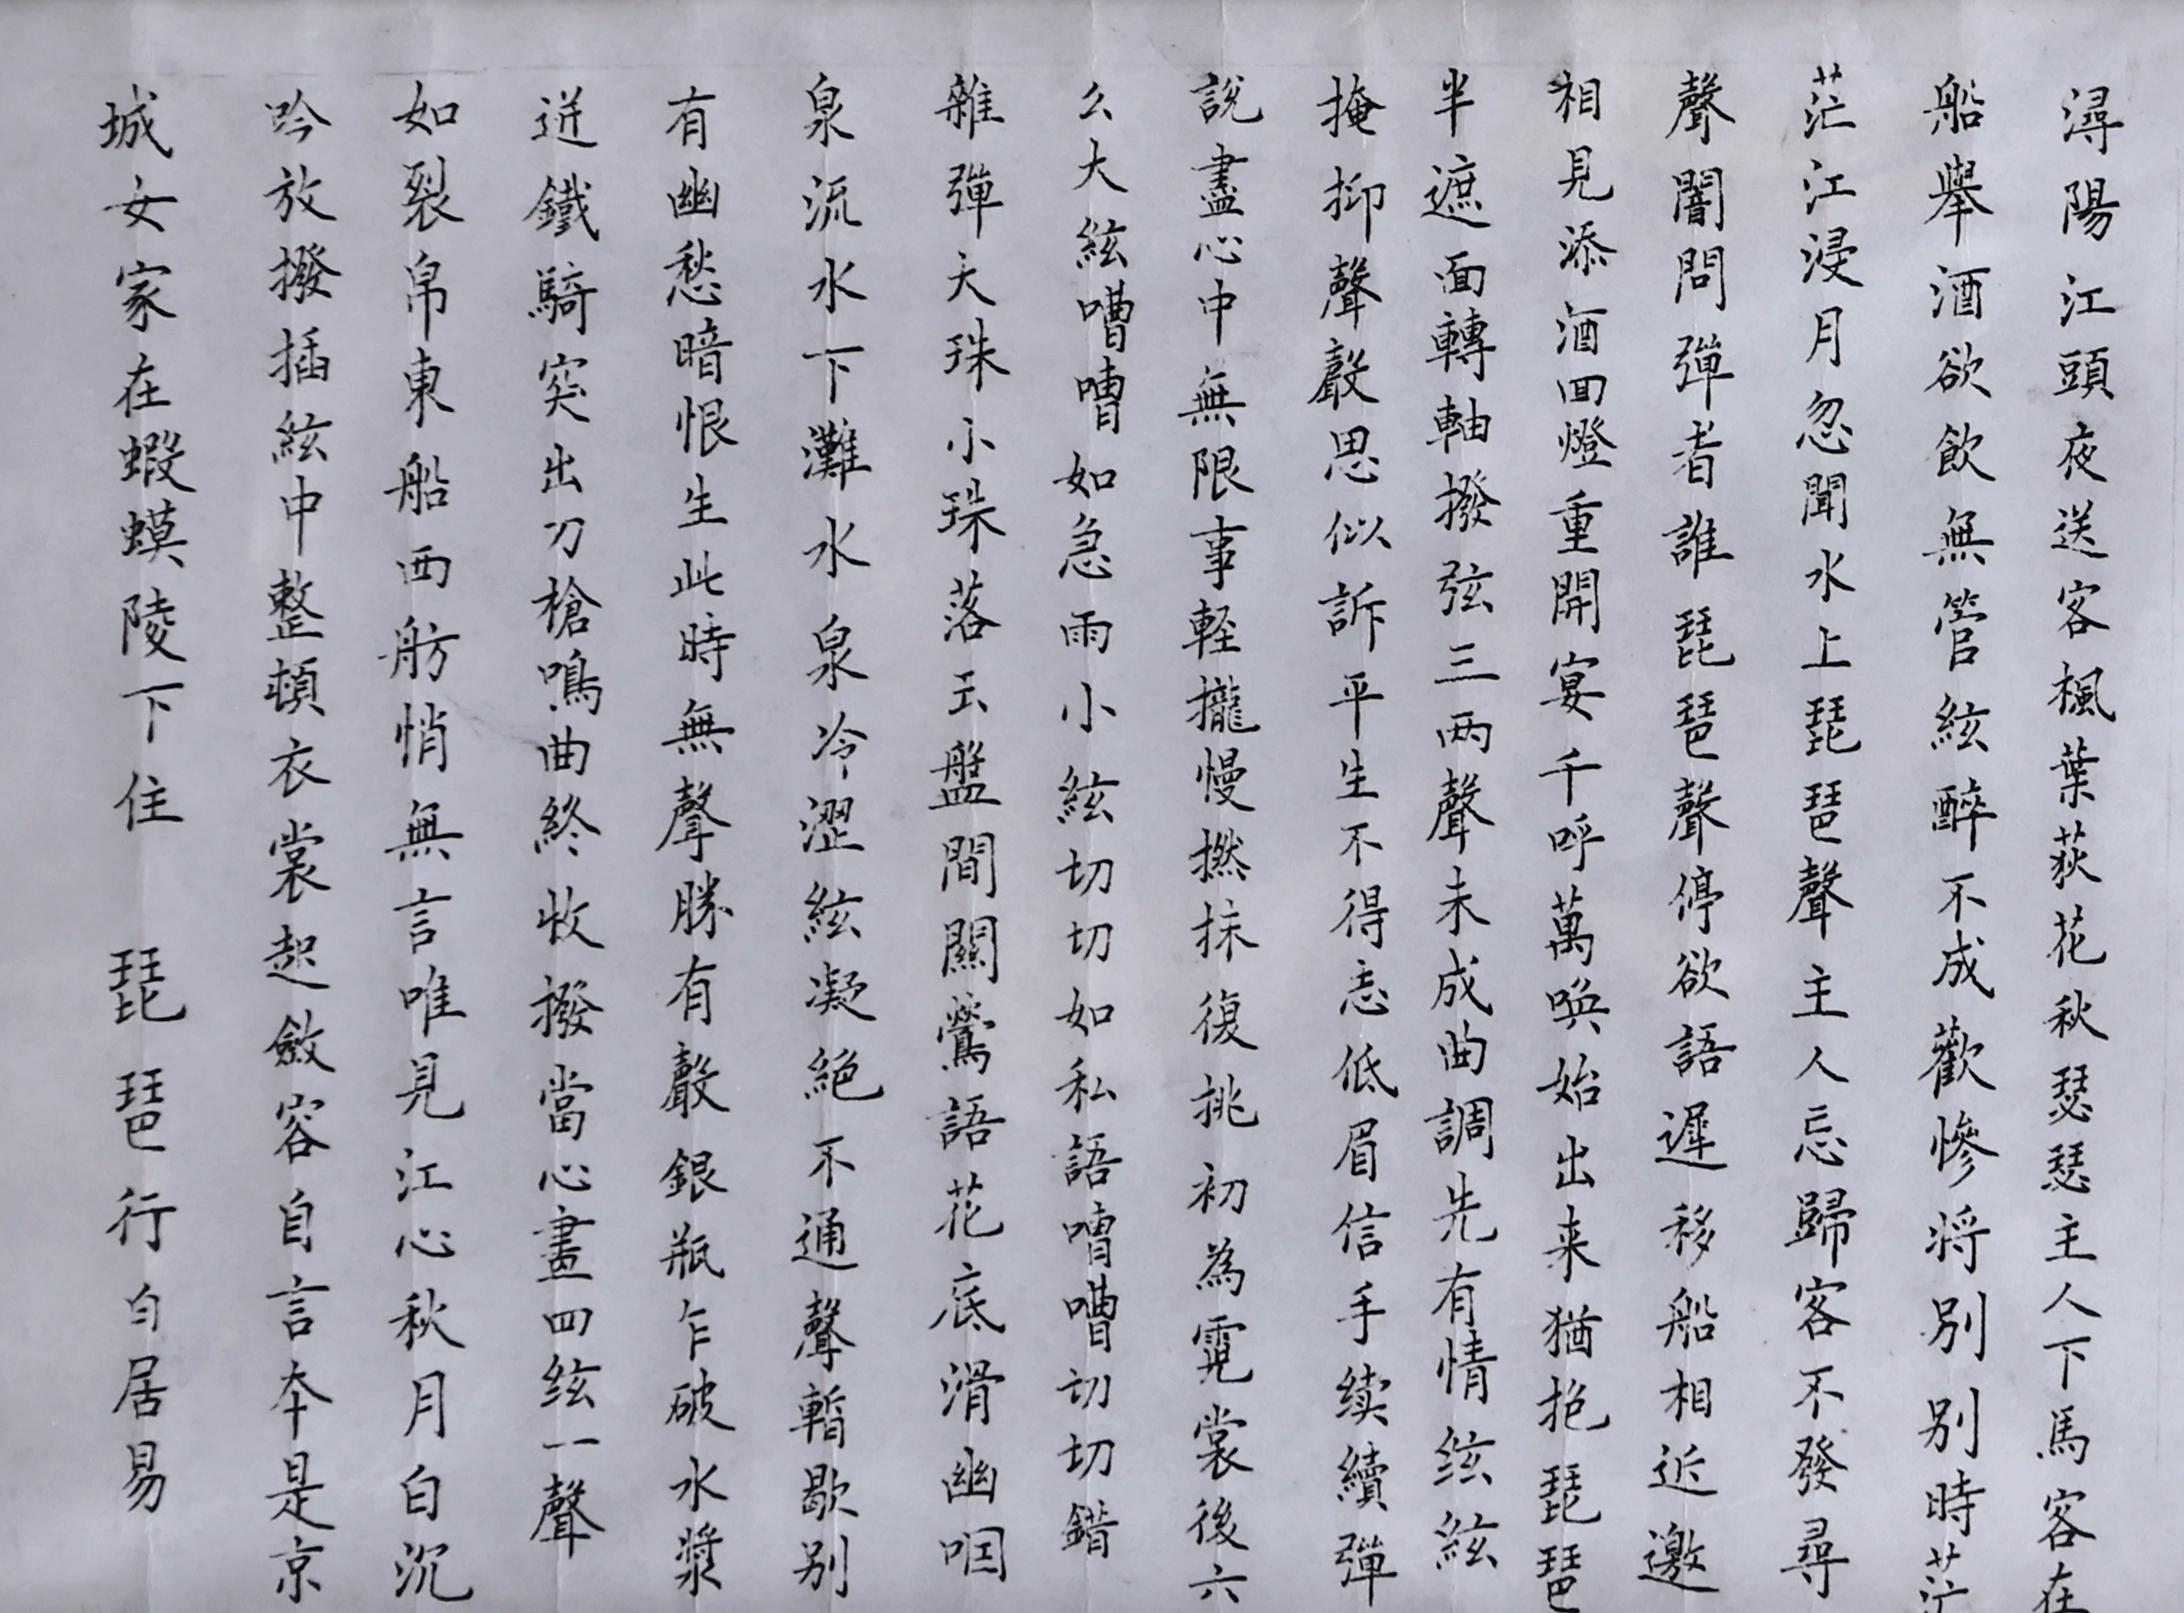 潯陽江頭夜送客楓葉荻花秋瑟瑟主人下馬客在
船舉酒欲飲無管絃醉不成歡慘将別別時茫
茫江浸月忽聞水上琵琶聲主人忘歸客不發尋
聲闇問彈者誰琵琶聲停欲語遲移船相近邀
相見添酒回燈重開宴千呼萬喚始出来猶抱琵琶
半遮面轉軸撥弦三两聲未成曲調先有情絃絃
掩抑聲聲思似訴平生不得志低眉信手续續彈
説盡心中無限事軽攏慢撚抹復挑初為霓裳後六
么大絃嘈嘈如急雨小絃切切如私語嘈嘈切切錯
雜彈大珠小珠落玉盤間關鶯語花底滑幽咽
泉流水下灘水泉冷澀絃凝絕不通聲暫歇别
有幽愁暗恨生此時無聲勝有聲銀瓶乍破水漿
迸鐵騎突出刀槍鳴曲終收撥當心畫四絃一聲
如裂帛東船西舫悄無言唯見江心秋月白沉
吟放撥插絃中整頓衣裳起斂容自言本是京
城女家在蝦蟆陵下住 琵琶行白居易